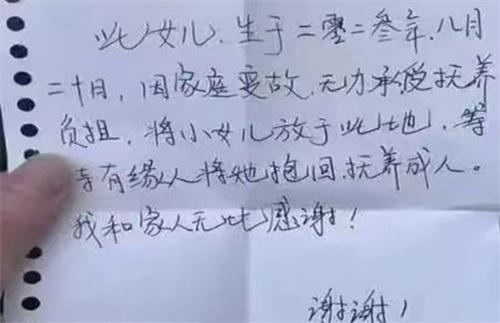 此女儿.生于二零二叁年.八月
二十日，因家庭变故.无力承受抚养
负担，将小女儿放于此地，等
待有缘人将她抱回.抚养成人。
我和家人无比感谢！
谢谢！